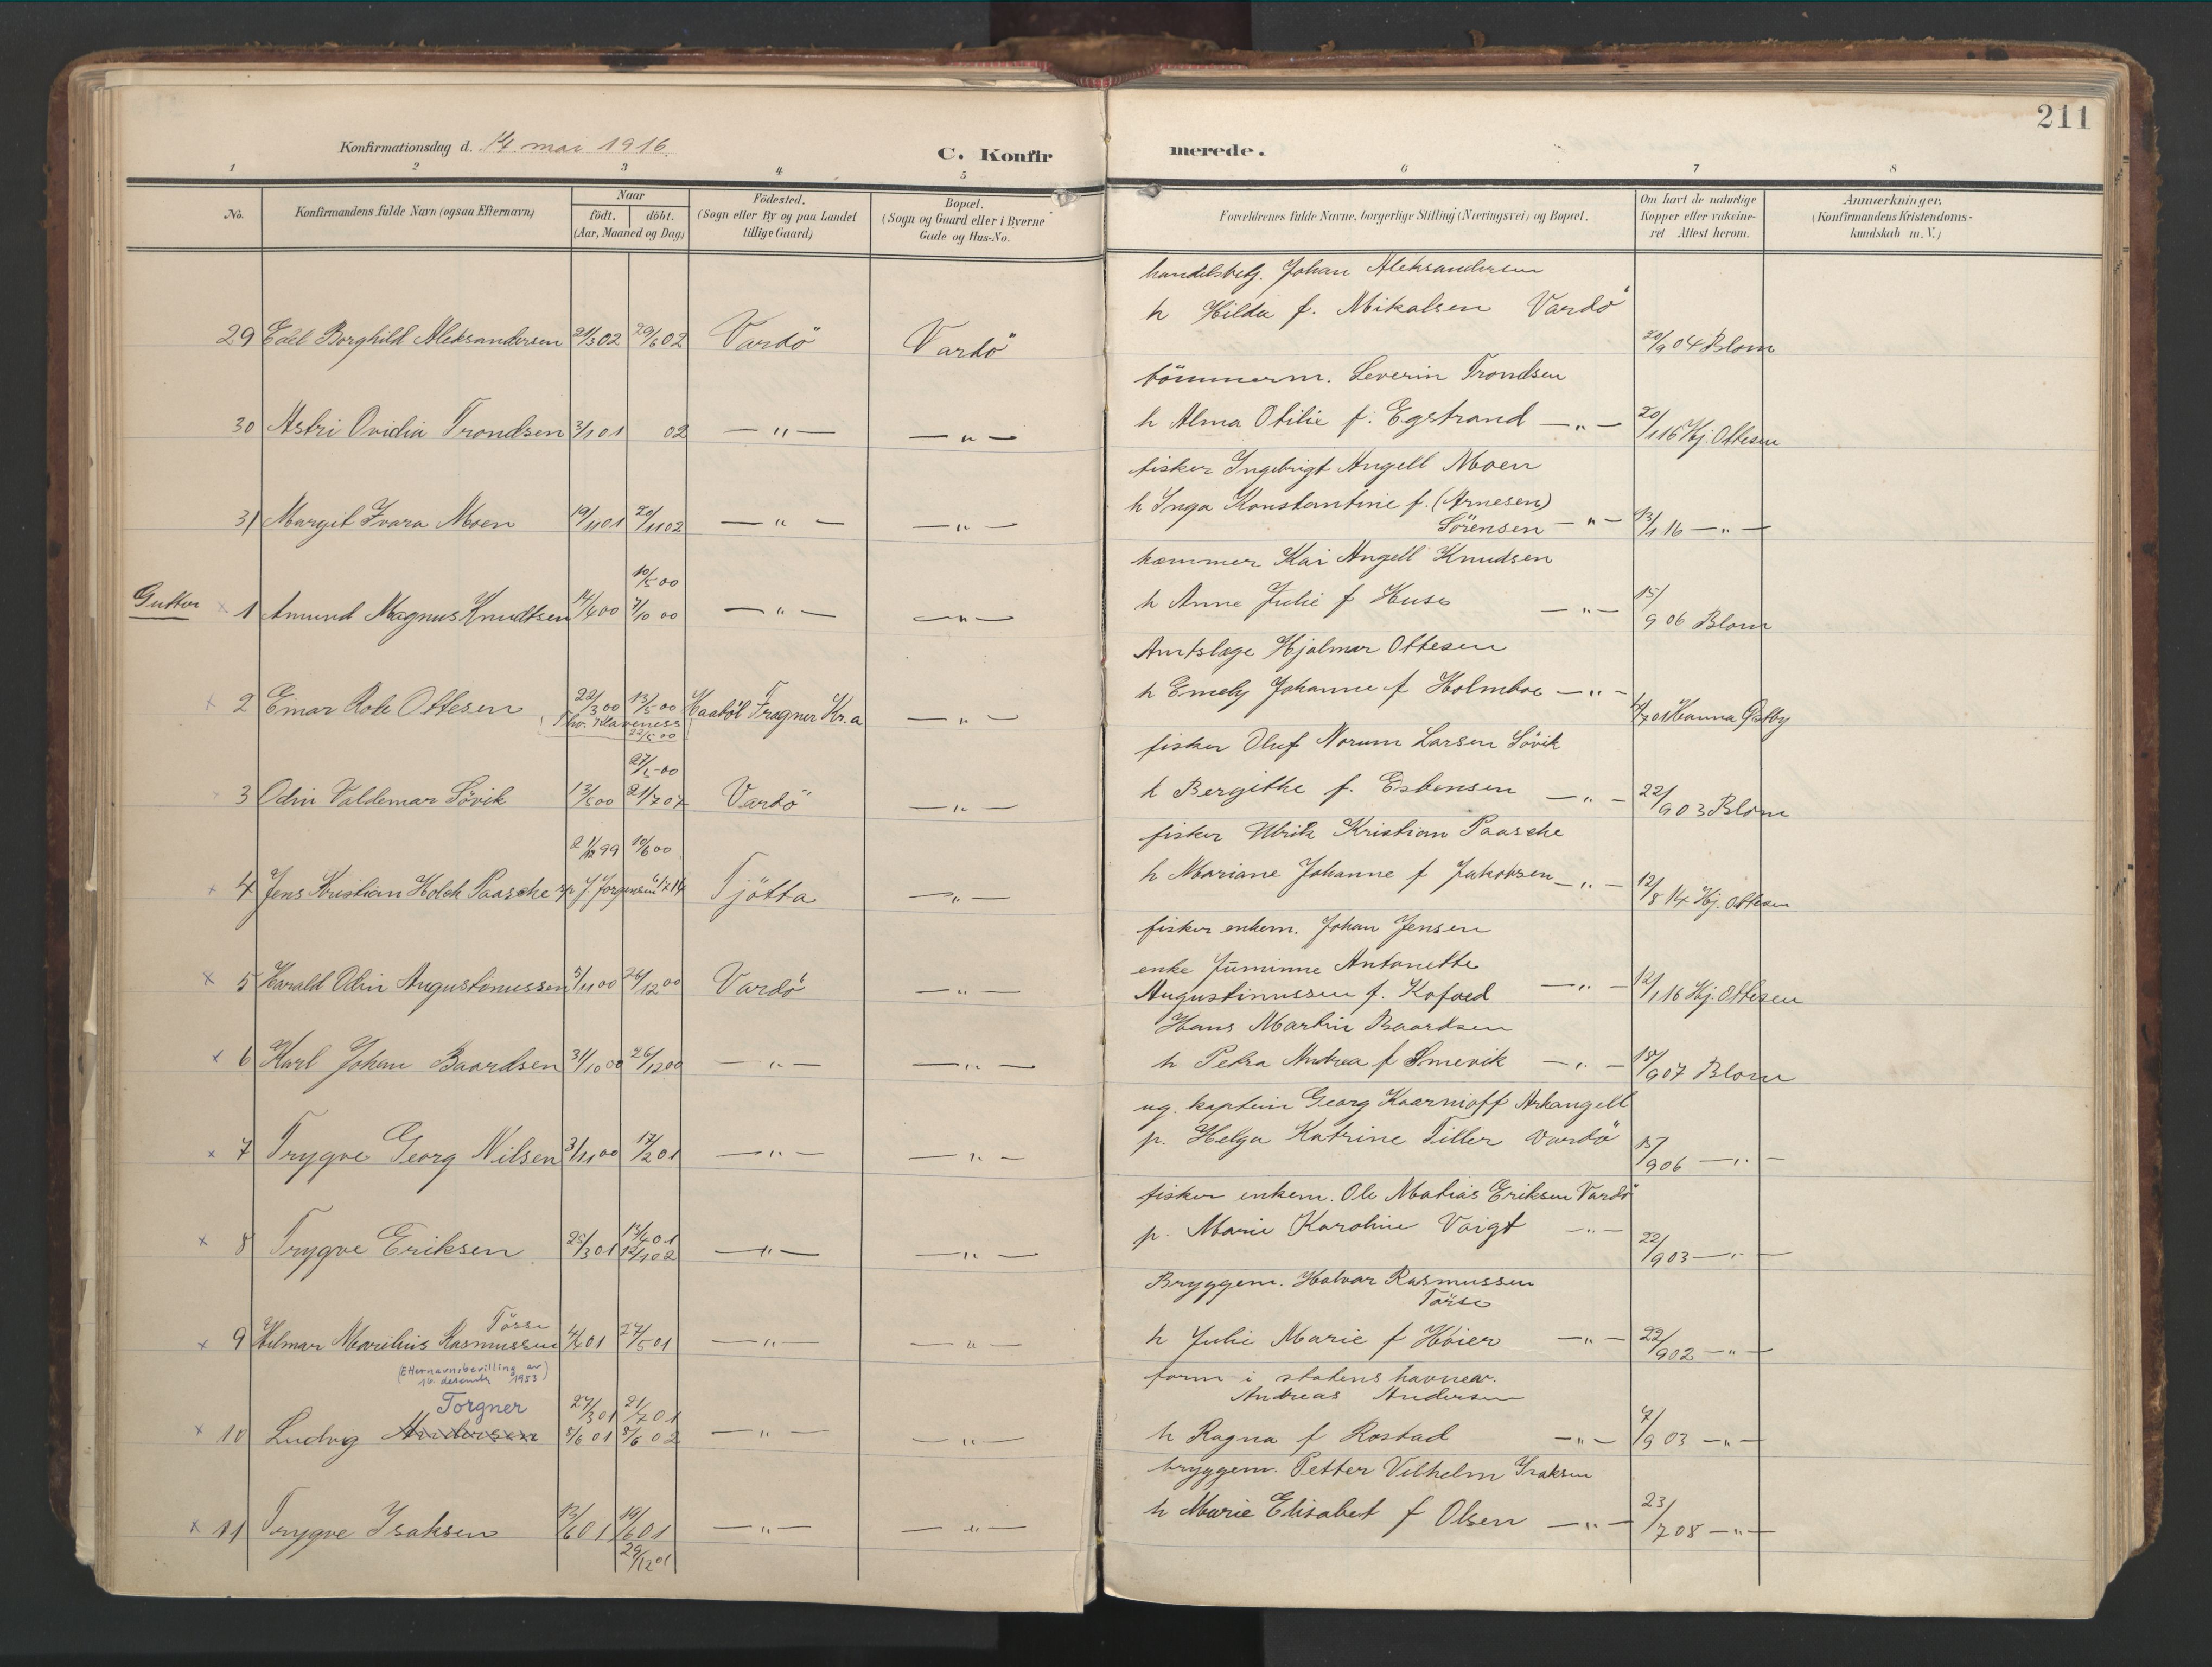 211
Konfirmationsdag d. 14. mai 1916.
C. Konfirmerede.
1 2 3 4 5 6 7 8
No.
Konfirmandens fulde Navn (ogsaa Efternavn)
Naar
födt. döbt.
(Aar, Maaned og Dag)
Födested.
(Sogn eller By og paa Landet
tillige Gaard)
Bopæl.
(Sogn og Gaard eller i Byerne
Gade og Hus-No.
Forældrenes fulde Navne, borgerlige Stilling (Næringsvei) og Bopæl.
Om havt de naturlige
Kopper eller vakcine-
ret Attest herom.
Anmærkninger.
(Konfirmandens Kristendoms-
kundskab m. V.)
handelsbetj. Johan Aleksandersen
h Hilda f. Mikalsen Vardö
29 Edel Borghild Aleksandersen 21/3 02 29/6 02 Vardö Vardö 20/9 04 Blom
tömmerm. Severin Trondsen
30 Astri Ovidia Trondsen 3/1 01 02 — " — — " — h Alma Otilie f. Egstrand — " — 20/1 16 Hj. Ottesen
fisker Ingebrigt Angell Moen
h Inga Konstantine f. (Arnesen)
31 Margit Ivara Moen 19/11 01 20/11 02 — " — — " — Sörensen — " — 13/1 16 — " —
kæmner Kai Angell Knudsen
10/5 00
Gutter × 1 Amund Magnus Knudtsen 14/4 00 7/10 00 — " — — " — h Anne Julie f Huse — " — 15/9 06 Blom
Amtslæge Hjalmar Ottesen
× 2 Einar Rode Ottesen 22/3 00 13/5 00 Fragner Kr.a — " — h Emely Johanne f Holmboe — " — Hanna Østby
(Thv. Klaveness
22/5 00
fisker Oluf Norum Larsen Sövik
27/5 00
3 Odin Valdemar Sövik 13/5 00 21/7 07 Vardö — " — h Bergithe f. Esbensen — " — 22/9 03 Blom
fisker Ulrik Kristian Paasche
21/12 99 10/6 00
× 4 Jens Kristian Holck Paasche J. Jörgensen 6/12 14 Tjötta — " — h Mariane Johanne f Jakobsen — " — 12/8 14 Hj. Ottesen
fisker enkem. Johan Jensen
enke Antonette
× 5 Harald Odin Augustinussen 5/11 00 26/12 00 Vardö — " — Augustinussen f. Kofoed — " — 12/1 16 Hj. Ottesen
Hans Martin Baardsen
× 6 Karl Johan Baardsen 31/10 00 26/12 00 — " — — " — h Petra Andrea f Smevik — " — 18/9 07 Blom
ug. kaptein Georg Kaarnioff Arkangell
× 7 Trygve Georg Nilsen 3/11 00 17/2 01 — " — — " — p. Helga Katrine Tiller Vardö 15/9 06 — " —
fisker enkem. Ole Matias Eriksen Vardö
× 8 Trygve Eriksen 25/3 01 13/4 01 12/1 02 — " — — " — p. Marie Karoline Voigt — " — 22/9 03 — " —
Bryggem. Halvar Rasmussen
Törse
Tösse
× 9 Hilmar Marelius Rasmussen 4/4 01 27/5 01 — " — — " — h Julie Marie f Höier — " — 22/9 02 — " —
(Etternavnsbevilling av
16. desember 1953)
form i statens havnev.
Andreas Andersen
Torgner 27/3 01 21/7 01
× 10 Ludvig Andersen 8/6 01 8/6 02 — " — — " — h Ragna f Rostad — " — 7/9 03 — " —
bryggem. Petter Vilhelm Isaksen
× 11 Trygve Isaksen 13/6 01 19/6 01 — " — — " — h Marie Elisabet f Olsen — " — 23/7 08 — " —
29/12 01